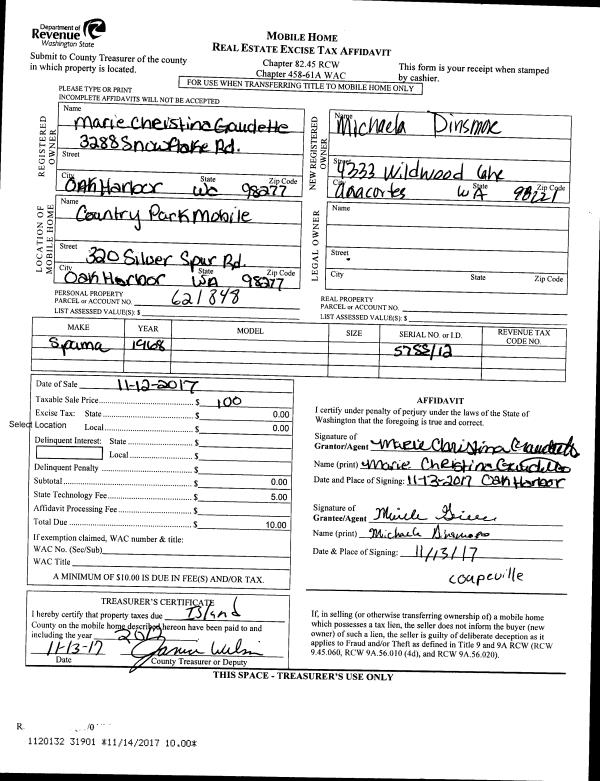 Department of
Revenue
Washington State
MOBILE HOME
REAL ESTATE EXCISE TAX AFFIDAVIT
Submit to County Treasurer of the county
in which property is located.
Chapter 82.45 RCW
Chapter 458-61A WAC
This form is your receipt when stamped
by cashier.
FOR USE WHEN TRANSFERRING TITLE TO MOBILE HOME ONLY
PLEASE TYPE OR PRINT
INCOMPLETE AFFIDAVITS WILL NOT BE ACCEPTED
REGISTERED
OWNER
Name
Marie Christina Gaudette
3288 Snowflake Rd.
Street
City State Zip Code
Oak Harbor Wa 98277
NEW REGISTERED
OWNER
Name
Michaela Dinsmore
Street
4333 Wildwood Lane
City State Zip Code
Anacortes WA 98221
LOCATION OF
MOBILE HOME
Name
Country Park Mobile
Street
320 Silver Spur Rd.
City State Zip Code
Oak Harbor Wa 98277
LEGAL OWNER
Name
Street
City State Zip Code
PERSONAL PROPERTY
PARCEL or ACCOUNT NO. 621848
LIST ASSESSED VALUE(S): $
REAL PROPERTY
PARCEL or ACCOUNT NO.
LIST ASSESSED VALUE(S): $
MAKE YEAR MODEL SIZE SERIAL NO. or I.D. REVENUE TAX
CODE NO.
1968 5755/12
Date of Sale 11-12-2017
Taxable Sale Price $ 100
Excise Tax: State $ 0.00
Select Location
Local $ 0.00
Delinquent Interest: State $
Local $
Delinquent Penalty $
Subtotal $ 0.00
State Technology Fee $ 5.00
Affidavit Processing Fee $
Total Due $ 10.00
If exemption claimed, WAC number & title:
WAC No. (Sec/Sub)
WAC Title
A MINIMUM OF $10.00 IS DUE IN FEE(S) AND/OR TAX.
AFFIDAVIT
I certify under penalty of perjury under the laws of the State of
Washington that the foregoing is true and correct.
Signature of
Grantor/Agent Marie Christina Gaudette
Name (print) Marie Christina Gaudette
Date and Place of Signing: 11-13-2017 Oak Harbor
Signature of
Grantee/Agent
Name (print) Michaela Dinsmore
Date & Place of Signing: 11/13/17
coupeville
TREASURER'S CERTIFICATE
I hereby certify that property taxes due Island
County on the mobile home described hereon have been paid to and
including the year 2017
11-13-17
Date County Treasurer or Deputy
If, in selling (or otherwise transferring ownership of) a mobile home
which possesses a tax lien, the seller does not inform the buyer (new
owner) of such a lien, the seller is guilty of deliberate deception as it
applies to Fraud and/or Theft as defined in Title 9 and 9A RCW (RCW
9.45.060, RCW 9A.56.010 (4d), and RCW 9A.56.020).
THIS SPACE - TREASURER'S USE ONLY
1120132 31901 *11/14/2017 10.00*